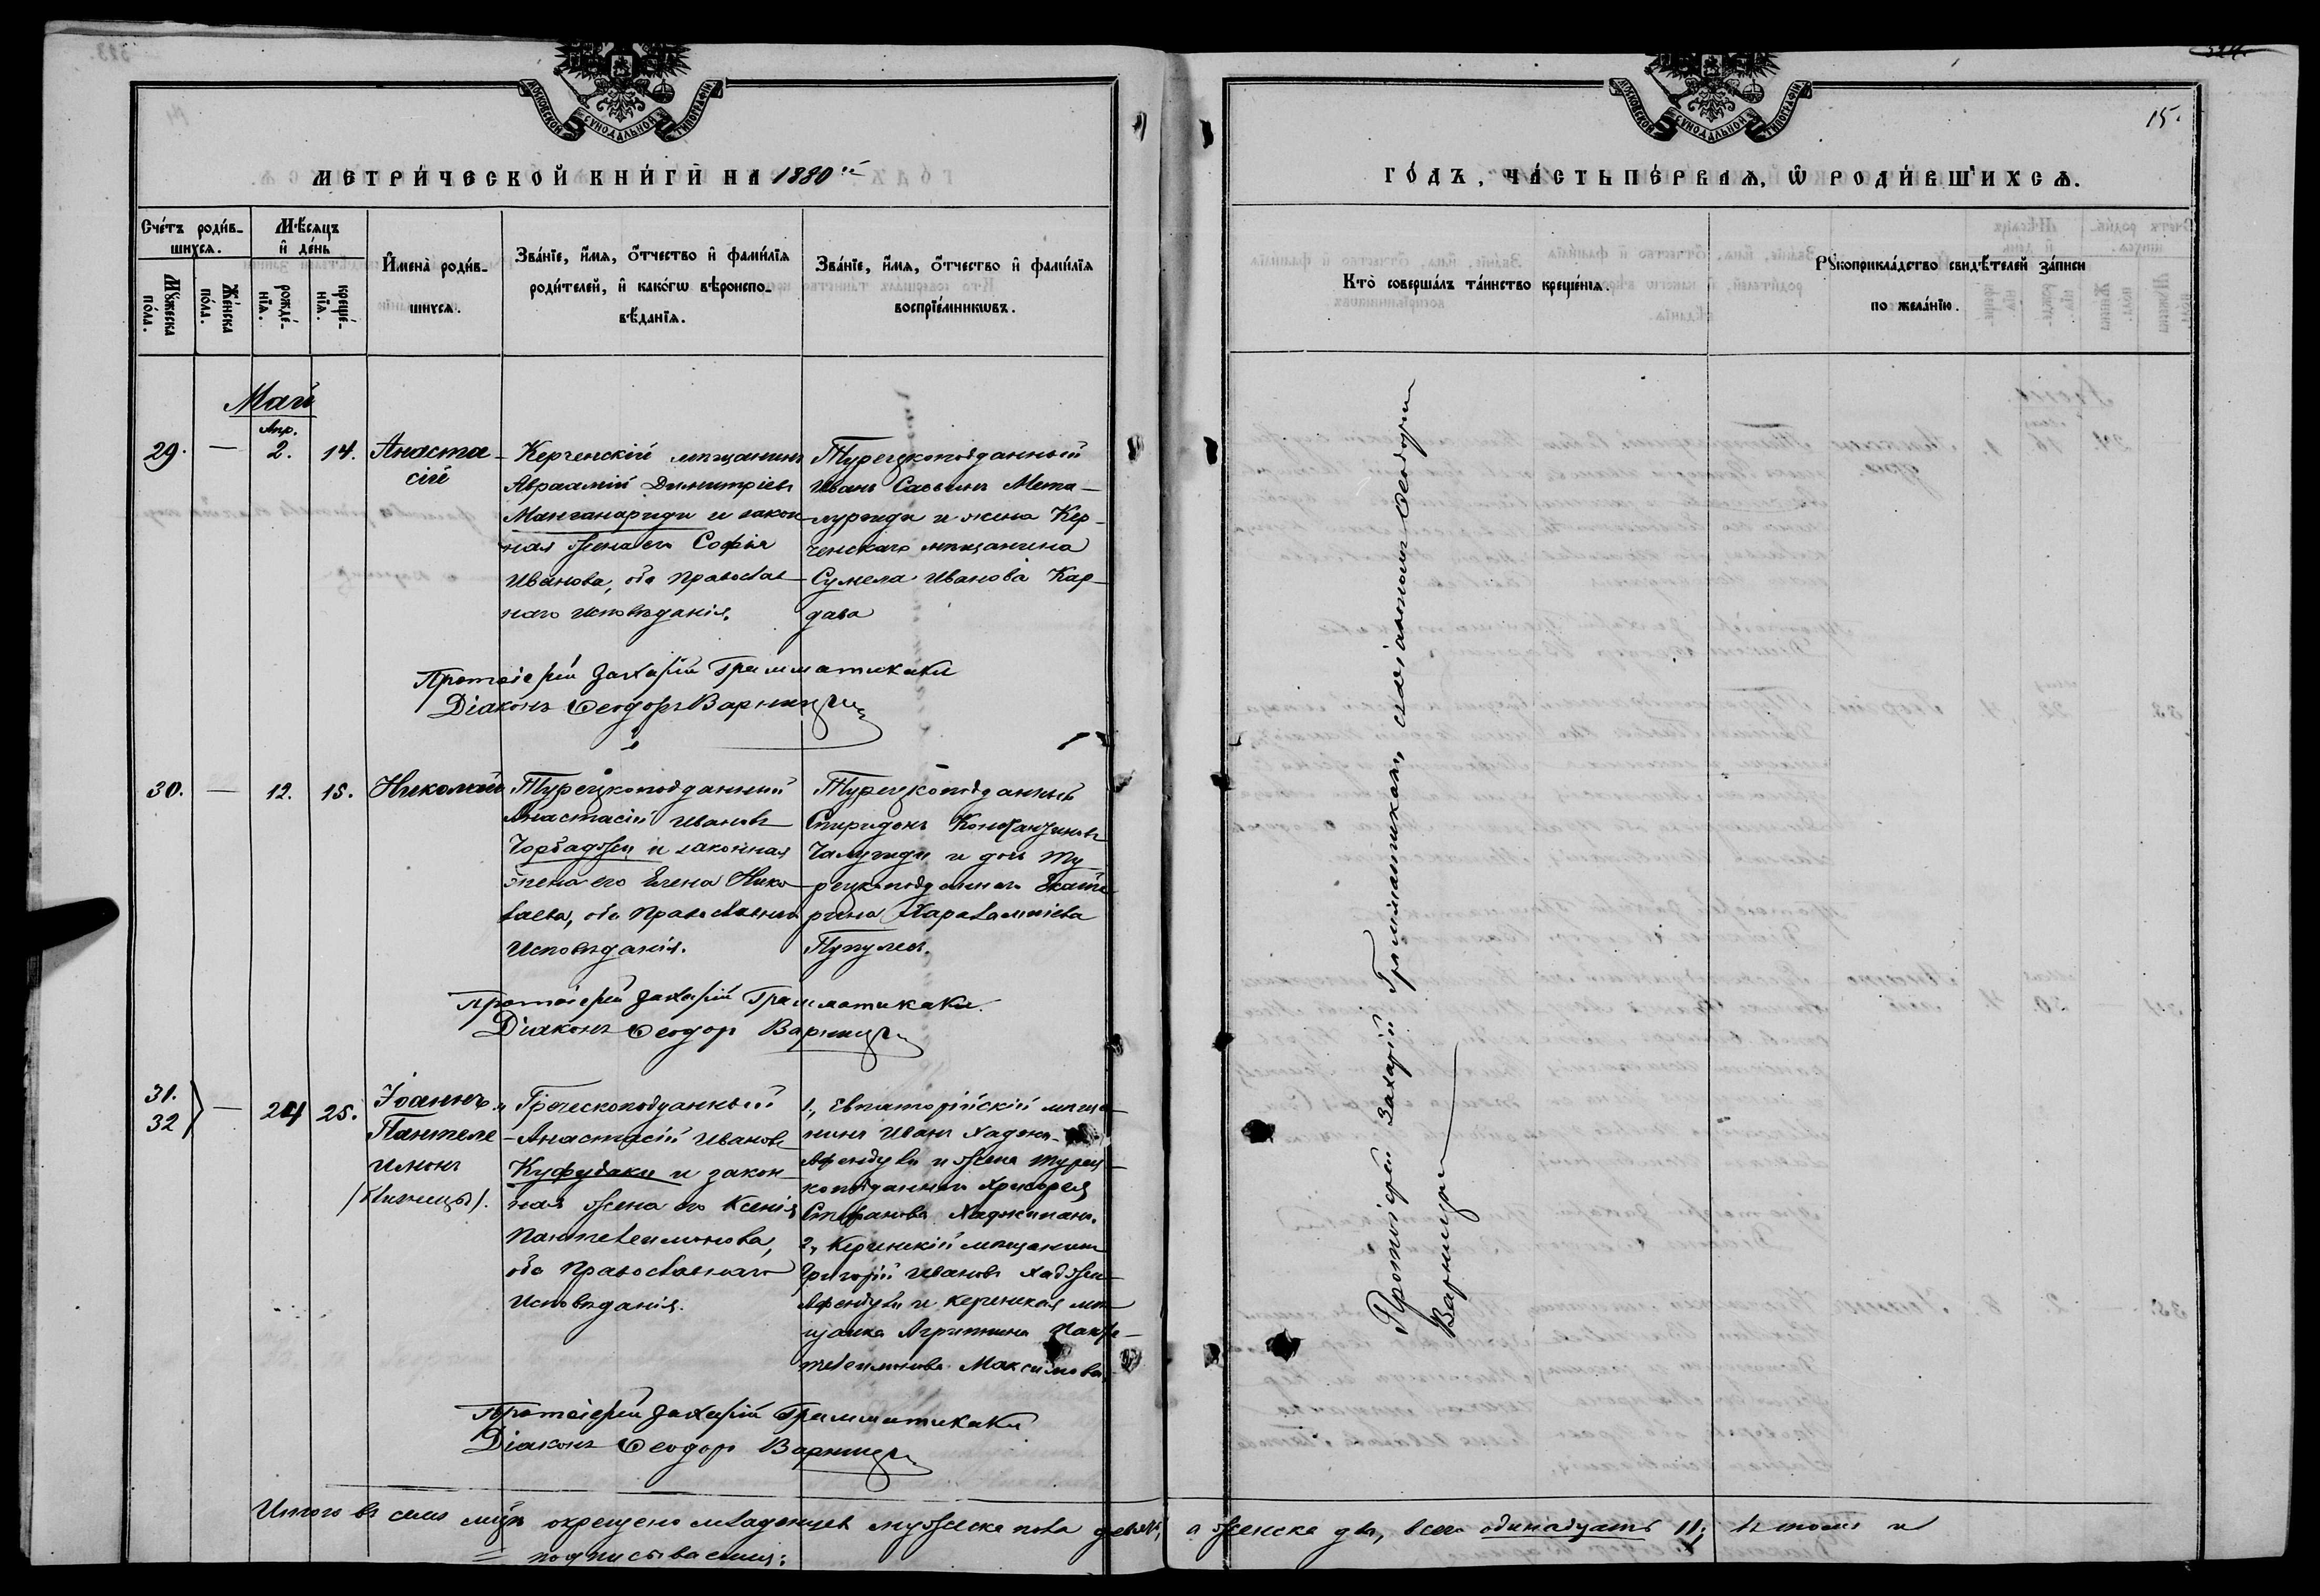 15.
МОСКОВСКОЙ СУНОДАЛЬНОЙ ТИПОГРАФІИ
МЕТРИ́ЧЕСКОЙ КНИ́ГИ НА 1880й
Сче́тъ роди́в-
шихсѧ.
Мꙋ́жеска
по́ла.
Же́нска
по́ла.
Мѣ́сѧцъ
и҆ де́нь
рожде́-
нїѧ.
креще́-
нїѧ.
И҆мена̀ роди́в-
шихсѧ.
Зва́нїе, и҆́мѧ, ѻ҆́тчество и҆ фами́лїѧ
роди́телей, и҆ како́гѡ вѣроиспо-
вѣ́данїѧ.
Зва́нїе, и҆́мѧ, ѻ҆́тчество и҆ фами́лїѧ
воспрїе́мникѡвъ.
Май
29. — Апр. 2. 14.
Анаста-
сій
Керченскій мѣщанинъ
Авраамій Димитріевъ
Манганариди и закон-
ная жена его Софія
Иванова, оба Православ-
наго исповѣданія.
Турецкоподданный
Иванъ Саввинъ Мета-
лургиди и жена Кер-
ченскаго мѣщанина
Сумела Иванова Кар-
дава
Протоіерей Захарій Грамматикаки
Діаконъ Ѳеодоръ Варницзи
30. — 12. 15.
Николай
Турецкоподданный
Анастасій Ивановъ
Чорбаджи и законная
жена его Елена Нико-
лаева, оба Православнаго
Исповѣданія.
Турецкоподданный
Спиридонъ Константиновъ
и дочь Ту-
рецкоподданнаго Екате-
рина Харалампіева
Протоіерей Захарій Грамматикаки
Діаконъ Ѳеодоръ Варницзи
31.
32 — 24 25.
Іоаннъ и
Пантеле-
имонъ
(близнецы).
Греческоподданный
Анастасій Ивановъ
Куфудаки и закон-
ная жена его Ксенія
Пантелеимонова,
оба Православнаго
Исповѣданія.
1., Евпаторійскій мѣща-
нинъ Иванъ Хаджи-
Афендули и жена Турец-
коподданнаго
Стефанова
2., Керченскій мѣщанинъ
Григорій Ивановъ Хаджи-
Афендули и керченская мѣ-
щанка Агриппина Пан-
телеимонова Максимова.
Протоіерей Захарій Грамматикаки
Діаконъ Ѳеодоръ Варницзи
Итого въ семъ мцѣ окрещено младенцевъ мужеска пола девять, а женска два, всего одинадцать 11; въ томъ и
подписываемся:
МОСКОВСКОЙ СУНОДАЛЬНОЙ ТИПОГРАФІИ
ГО́ДЪ, ЧА́СТЬ ПЕ́РВАѦ, Ѡ҆ РОДИ́ВШИХСѦ.
Кто̀ соверша́лъ та́инство креще́нїѧ.
Рꙋкоприкла́дство свидѣ́телей за́писи
по жела́нїю.
Протоіерей Захарій Грамматикаки, Ѳеодоръ
Варницзи